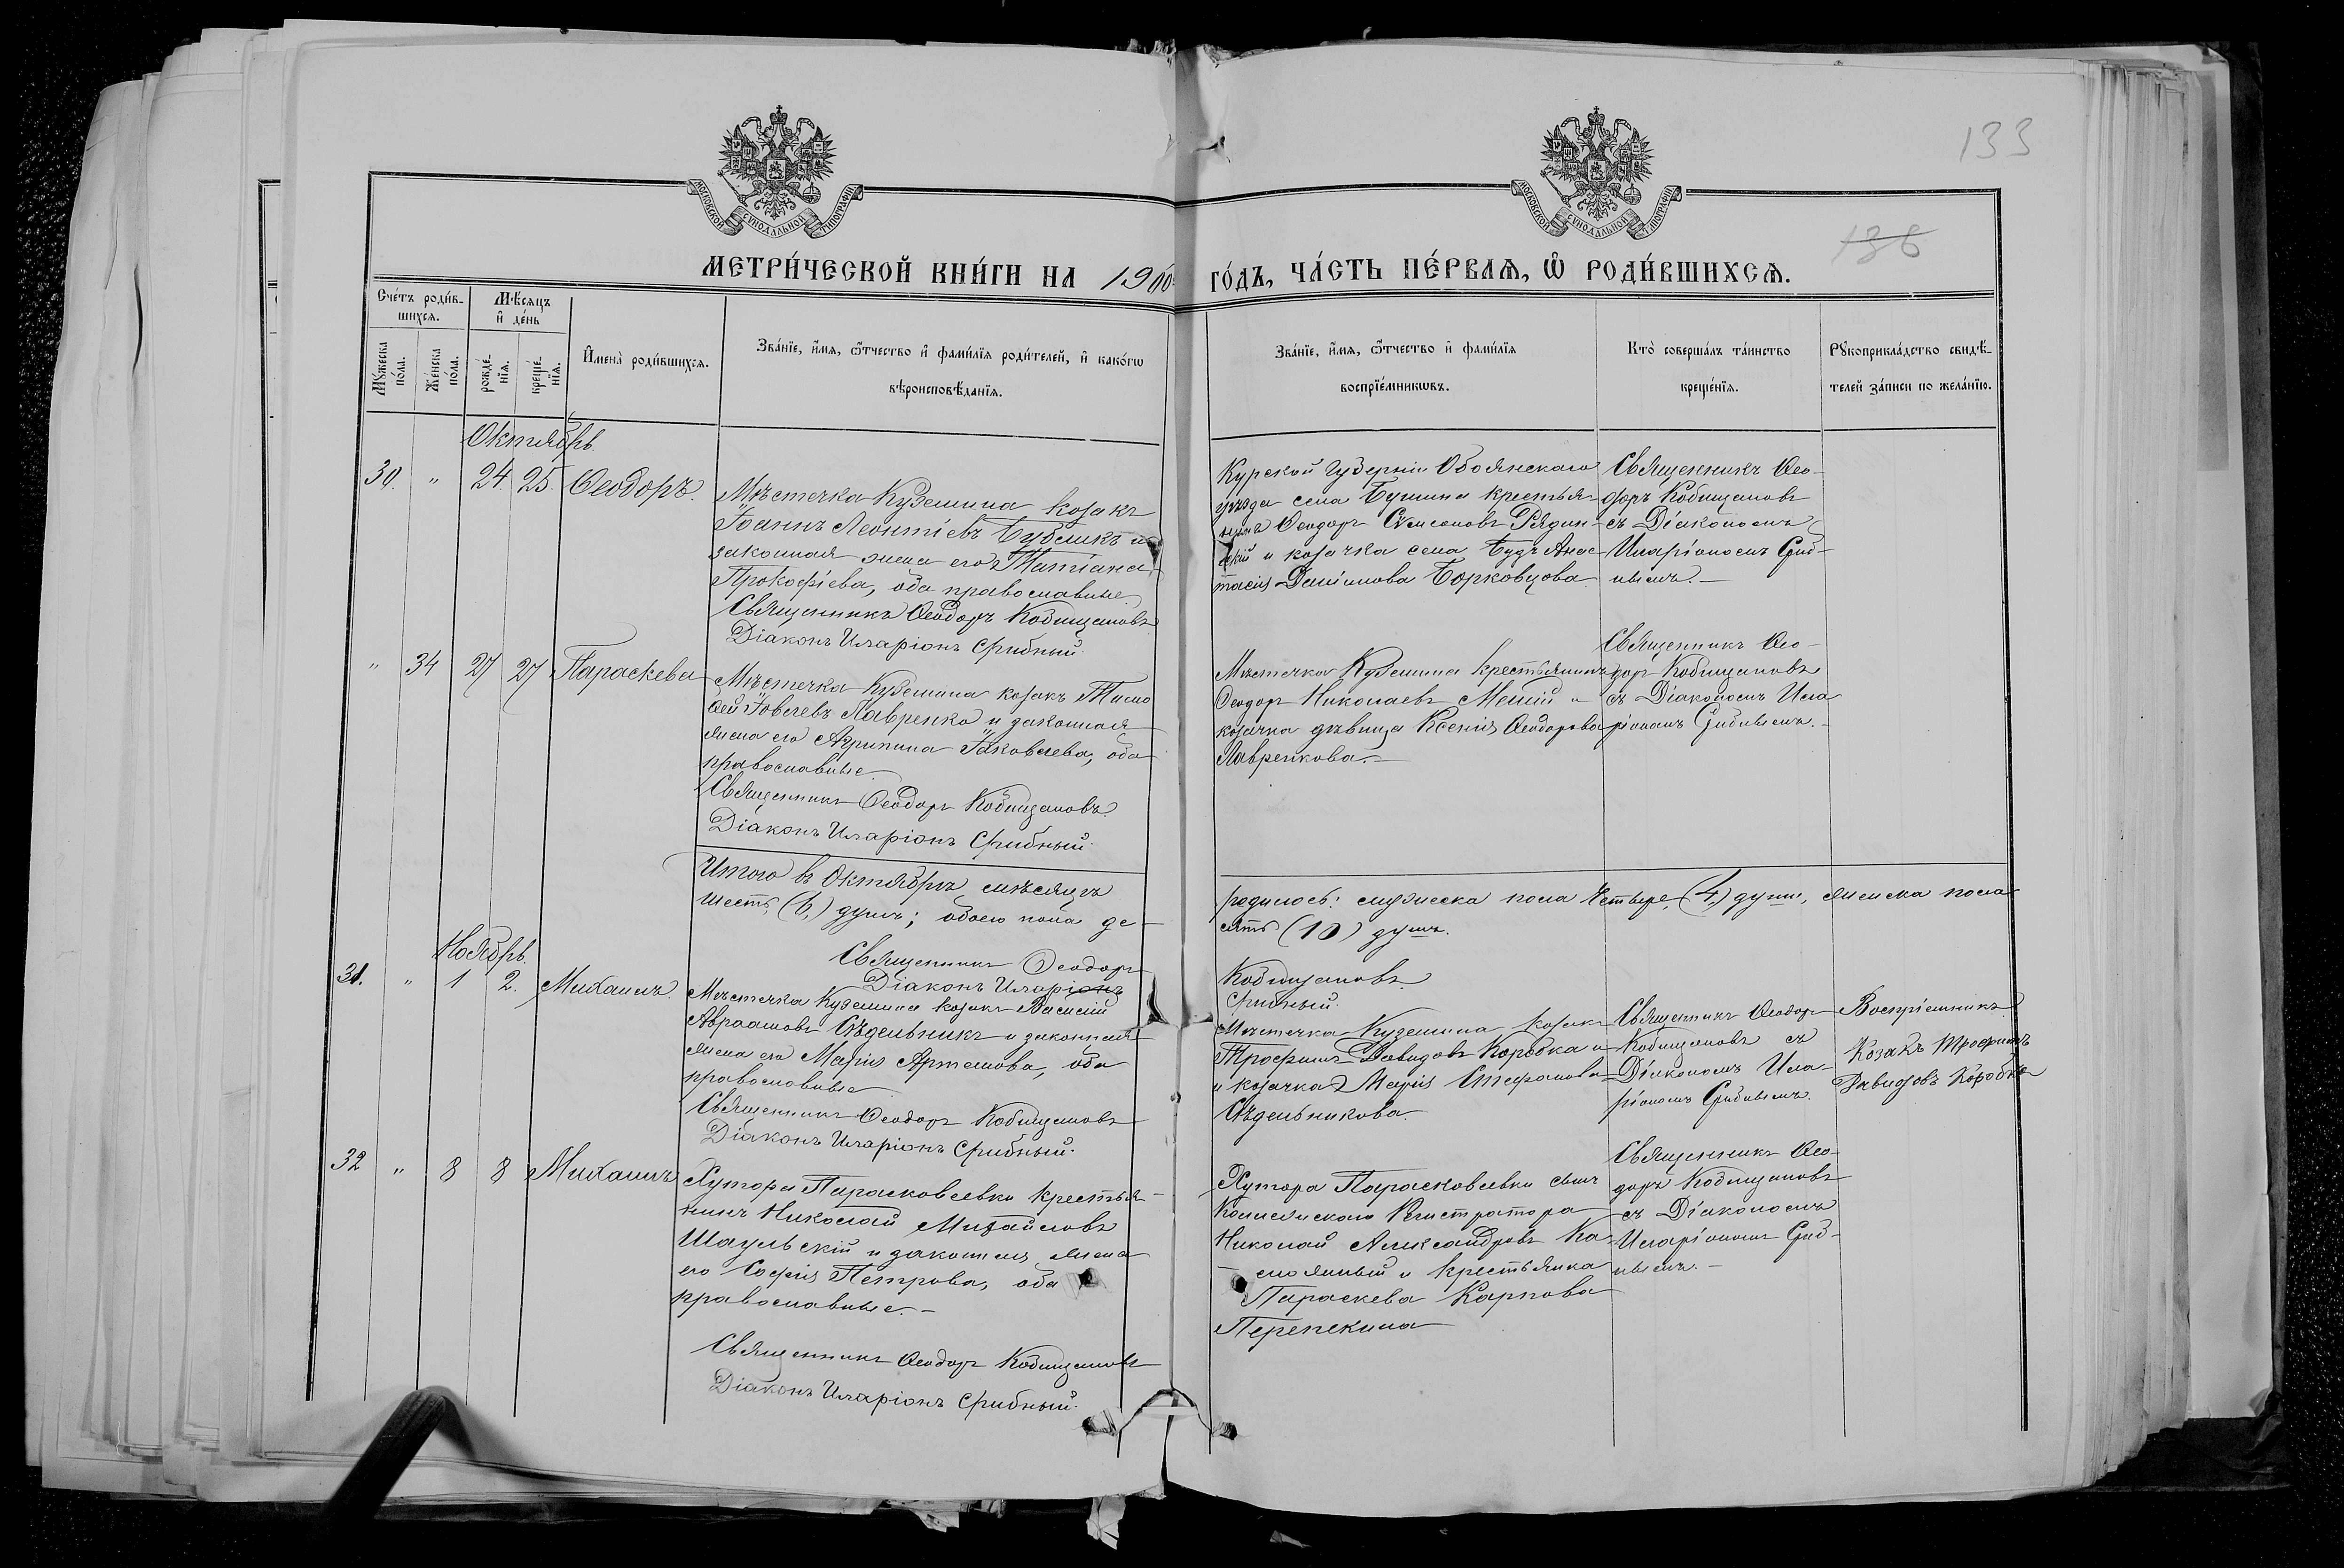 133
136
МОСКОВСКОЙ СѴНОДАЛЬНОЙ ТИПОГРАФІИ
МОСКОВСКОЙ СѴНОДАЛЬНОЙ ТИПОГРАФІИ
МЕТРИ́ЧЕСКОЙ КНИ́ГИ НА 1900 ГО́ДЪ, ЧА́СТЬ ПЕ́РВАѦ, Ѽ РОДИ́ВШИХСѦ.
Сче́тъ роди́в-
шихсѧ.
Мѣ́сѧцъ
и҆ де́нь
Мꙋ́жеска по́ла.
Же́нска по́ла.
рожде́-
нїѧ.
креще́-
нїѧ.
И҆мена̀ роди́вшихсѧ.
Зва́нїе, и҆́мѧ, ѻ҆́тчество и҆ фами́лїѧ роди́телей, и҆ како́гѡ
вѣроисповѣ́данїѧ.
Зва́нїе, и҆́мѧ, ѻ҆́тчество и҆ фами́лїѧ
воспрїе́мникѡвъ.
Кто̀ соверша́лъ та́инство
креще́нїѧ.
Рꙋкоприкла́дство свидѣ́-
телей за́писи по жела́нїю.
Октябрь
30. " 24. 25. Ѳеодоръ.
Мѣстечка Куземина козакъ
Іоаннъ Леонтіевъ Бубликъ и
законная жена его Татіана
Прокофіева, оба православные
Священникъ Ѳеодоръ Кобищановъ
Діаконъ Иларіонъ Срибный.
Курской губерніи Обоянскаго
уѣзда села Бушина крестья-
нинъ Ѳеодоръ Рядин-
скій и козачка села Будъ Анас-
тасія Даніилова Борковцова
Священникъ Ѳео-
доръ Кобищановъ
съ Діакономъ
Иларіономъ Сриб-
нымъ.—
" 34 27 27 Параскева
Мѣстечка Куземина козакъ Тимо
ѳей Іовлевъ Лавренко и законная
жена его Агрипина Іаковлева, оба
православные
Священникъ Ѳеодоръ Кобищановъ
Діаконъ Иларіонъ Срибный.
Мѣстечка Куземина крестьянинъ
Ѳеодоръ Николаевъ и
козачка дѣвица Ксенія Ѳеодорова
Лавренкова.—
Священникъ Ѳео-
доръ Кобищановъ
съ Діакономъ Ила
ріономъ Срибнымъ.—
Итого въ Октябрѣ мѣсяцѣ родилось: мужеска пола четыре, (4,) души, женска пола
шесть, (6,) душъ; обоего пола де-сять (10) душъ.
Священникъ Ѳеодоръ Кобищановъ
Діаконъ Иларіонъ Срибный.
Ноябрь.
31. " 1 2. Михаилъ.
Мѣстечка Куземина козакъ Василій
Авраамовъ Сѣдельникъ и законная
жена его Марія Артемова, оба
православные
Священникъ Ѳеодоръ Кобищановъ
Діаконъ Иларіонъ Срибный.
Мѣстечка Куземина козакъ
Трофимъ Давидовъ Коробка и
и козачка Марія Стефанова
Сѣдельникова.
Священникъ Ѳеодоръ
Кобищановъ съ
Діакономъ Ила-
ріономъ Срибнымъ.
Воспріемникъ
Козакъ Трофимъ
Давидовъ Коробка
32 " 8 8 Михаилъ
Хутора Парасковеевки крестья-
нинъ Николай Михайловъ
Шаульскій и законная жена
его Софія Петрова, оба
православные.—
Священникъ Ѳеодоръ Кобищановъ
Діаконъ Иларіонъ Срибный.
Хутора Парасковеевки сынъ
Колежскаго Регистратора
Николай Александровъ Ка-
и крестьянка
Параскева Карпова
Перепекина
Священникъ Ѳео-
доръ Кобищановъ
съ Діакономъ
Иларіономъ Сриб-
нымъ.—